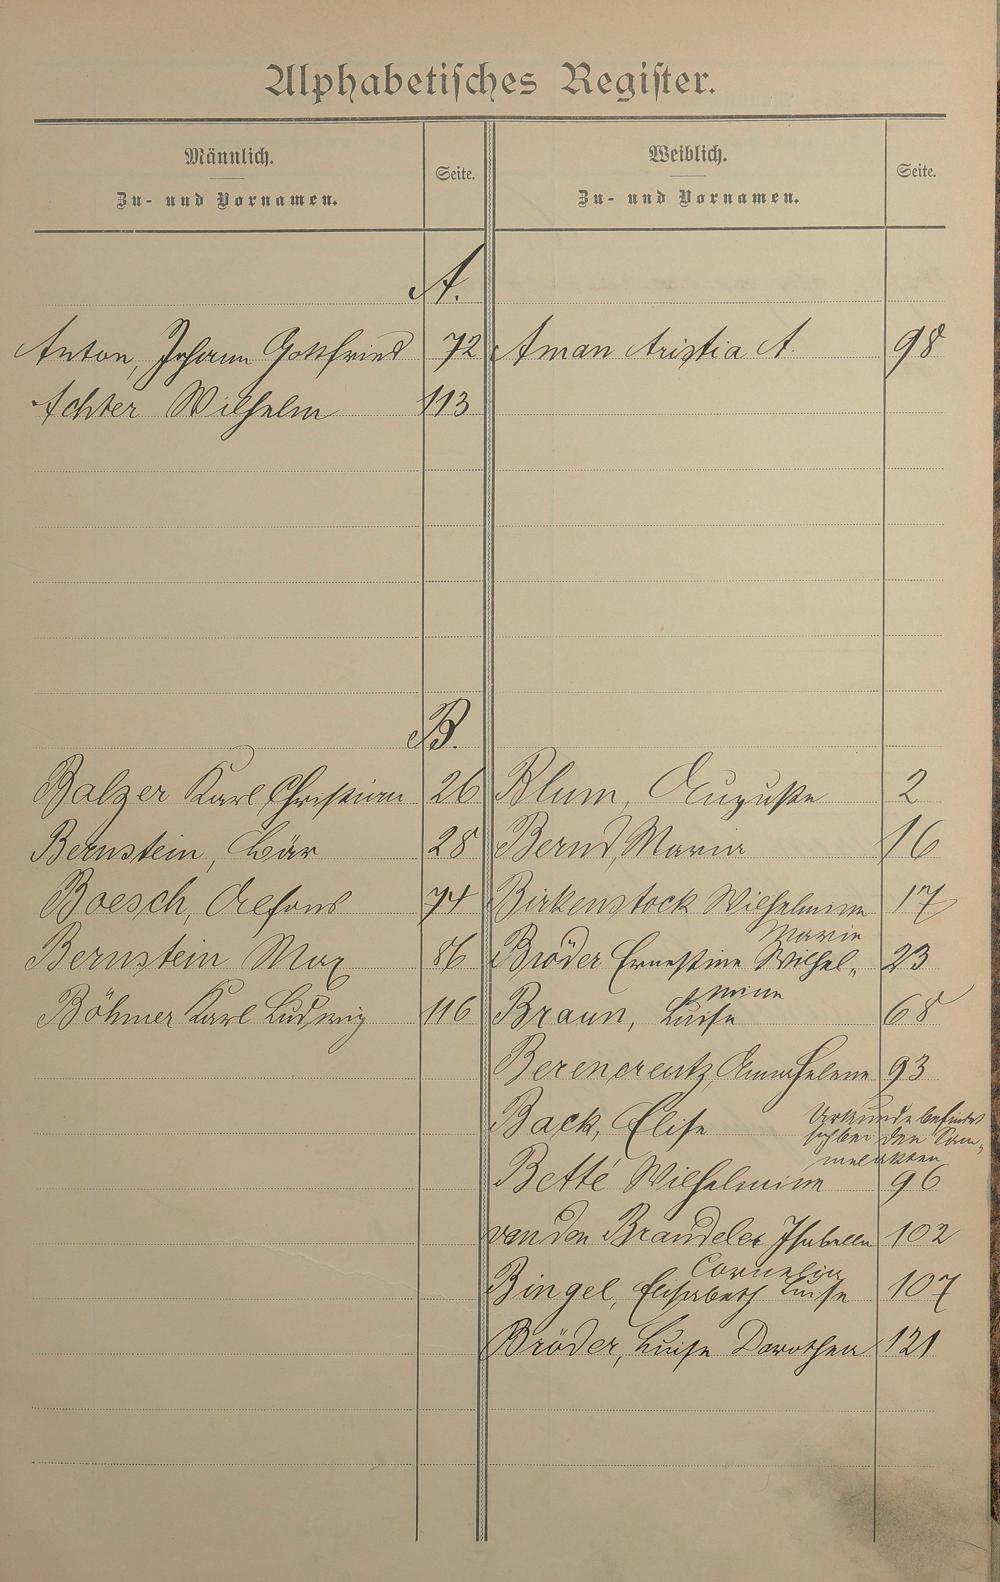 Alphabetisches Register.
Männlich. Seite. Weiblich. Seite.
Zu- und Vornamen. Zu- und Vornamen.
A.
Anton, Johann Gottfried 72 Aman Aristia A. 98
Achter Wilhelm 113
B.
Balzer Karl Christian 26 Blum, Auguste 2
Bernstein, Bär 28 Bernd, Maria 16
Boesch, Alfons 74 Birkenstock Wilhelmine 17
Marie
Bernstein Max 86 Bröder Ernestine Wilhel- 23
mine
Böhmer Karl Ludwig 116 Braun, Luise 68
Berencreutz, Anna Helene 93
Back, Elise Urkunde befindet
sich bei den Sam-
melakten
Betté Wilhelmine 96
van den Brandeler Isabella 102
Cornelia
Bingel, Elisabeth Luise 107
Bröder, Luise Dorothea 121